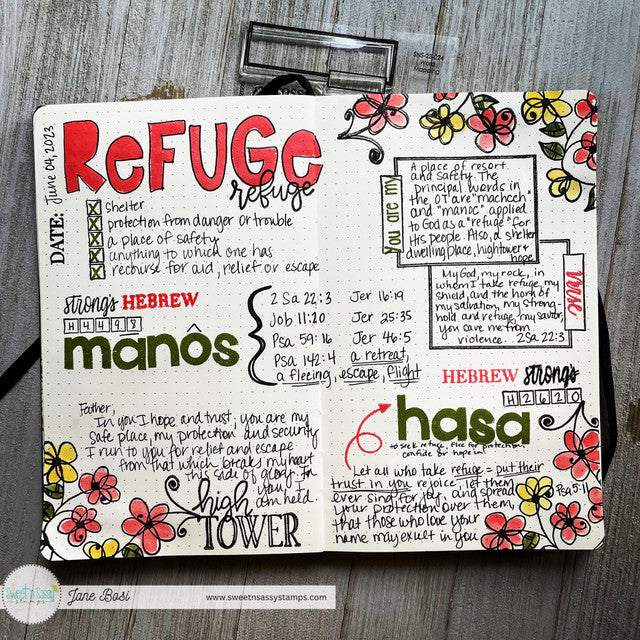 ReFUGe
refuge
DATE: June 04, 2023
shelter
protection from danger or trouble
a place of safety
anything to which one has
recourse for aid, relief or escape
strong's HEBREW
H4498
manôs
2 Sa 22:3 Jer 16:19
Job 11:20 Jer 25:35
Psa 59:16 Jer 46:5
Psa 142:4 a retreat,
a fleeing, escape, flight
Father,
In you I hope and trust, you are my
safe place, my protection and security
I run to you for relief and escape
from that which breaks my heart
this side of glory. In
you, I
am held.
high
TOWER
You are my
A place of resort
and safety. The
principal words in
the OT are "machceh"
and "manoc" applied
to God as a "refuge" for
His people. Also, a shelter
dwelling place, hightower &
hope
verse
My God, my rock, in
whom I take refuge, my
shield, and the horn of
my salvation, my strong-
hold and refuge, my savior,
you save me from
violence. 2Sa 22:3
HEBREW strong's
H2620
hasa
to seek refuge, flee for protection,
confide or hope in
Let all who take refuge = put their
trust in you rejoice, let them
ever sing for joy, and spread Psa 5:11
your protection over them,
that those who love your
name may exult in you
Sweet 'n Sassy
stamps
Jane Bosi
www.sweetnsassystamps.com